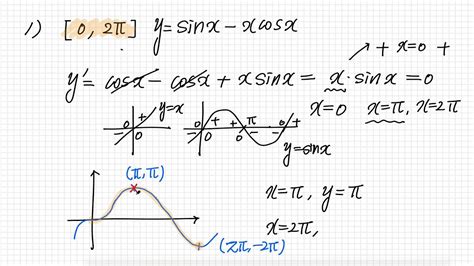 1) [0, 2π] y = sinx - xcosx
+ x=0 +
y' = cosx - cosx + x sinx = x·sinx = 0
x=0 x=π, x=2π
y=x
- 0 + 0
0 + + π 0 +
- 0 - -
y=sinx
(π, π)
x=π, y=π
x=2π,
(2π, -2π)